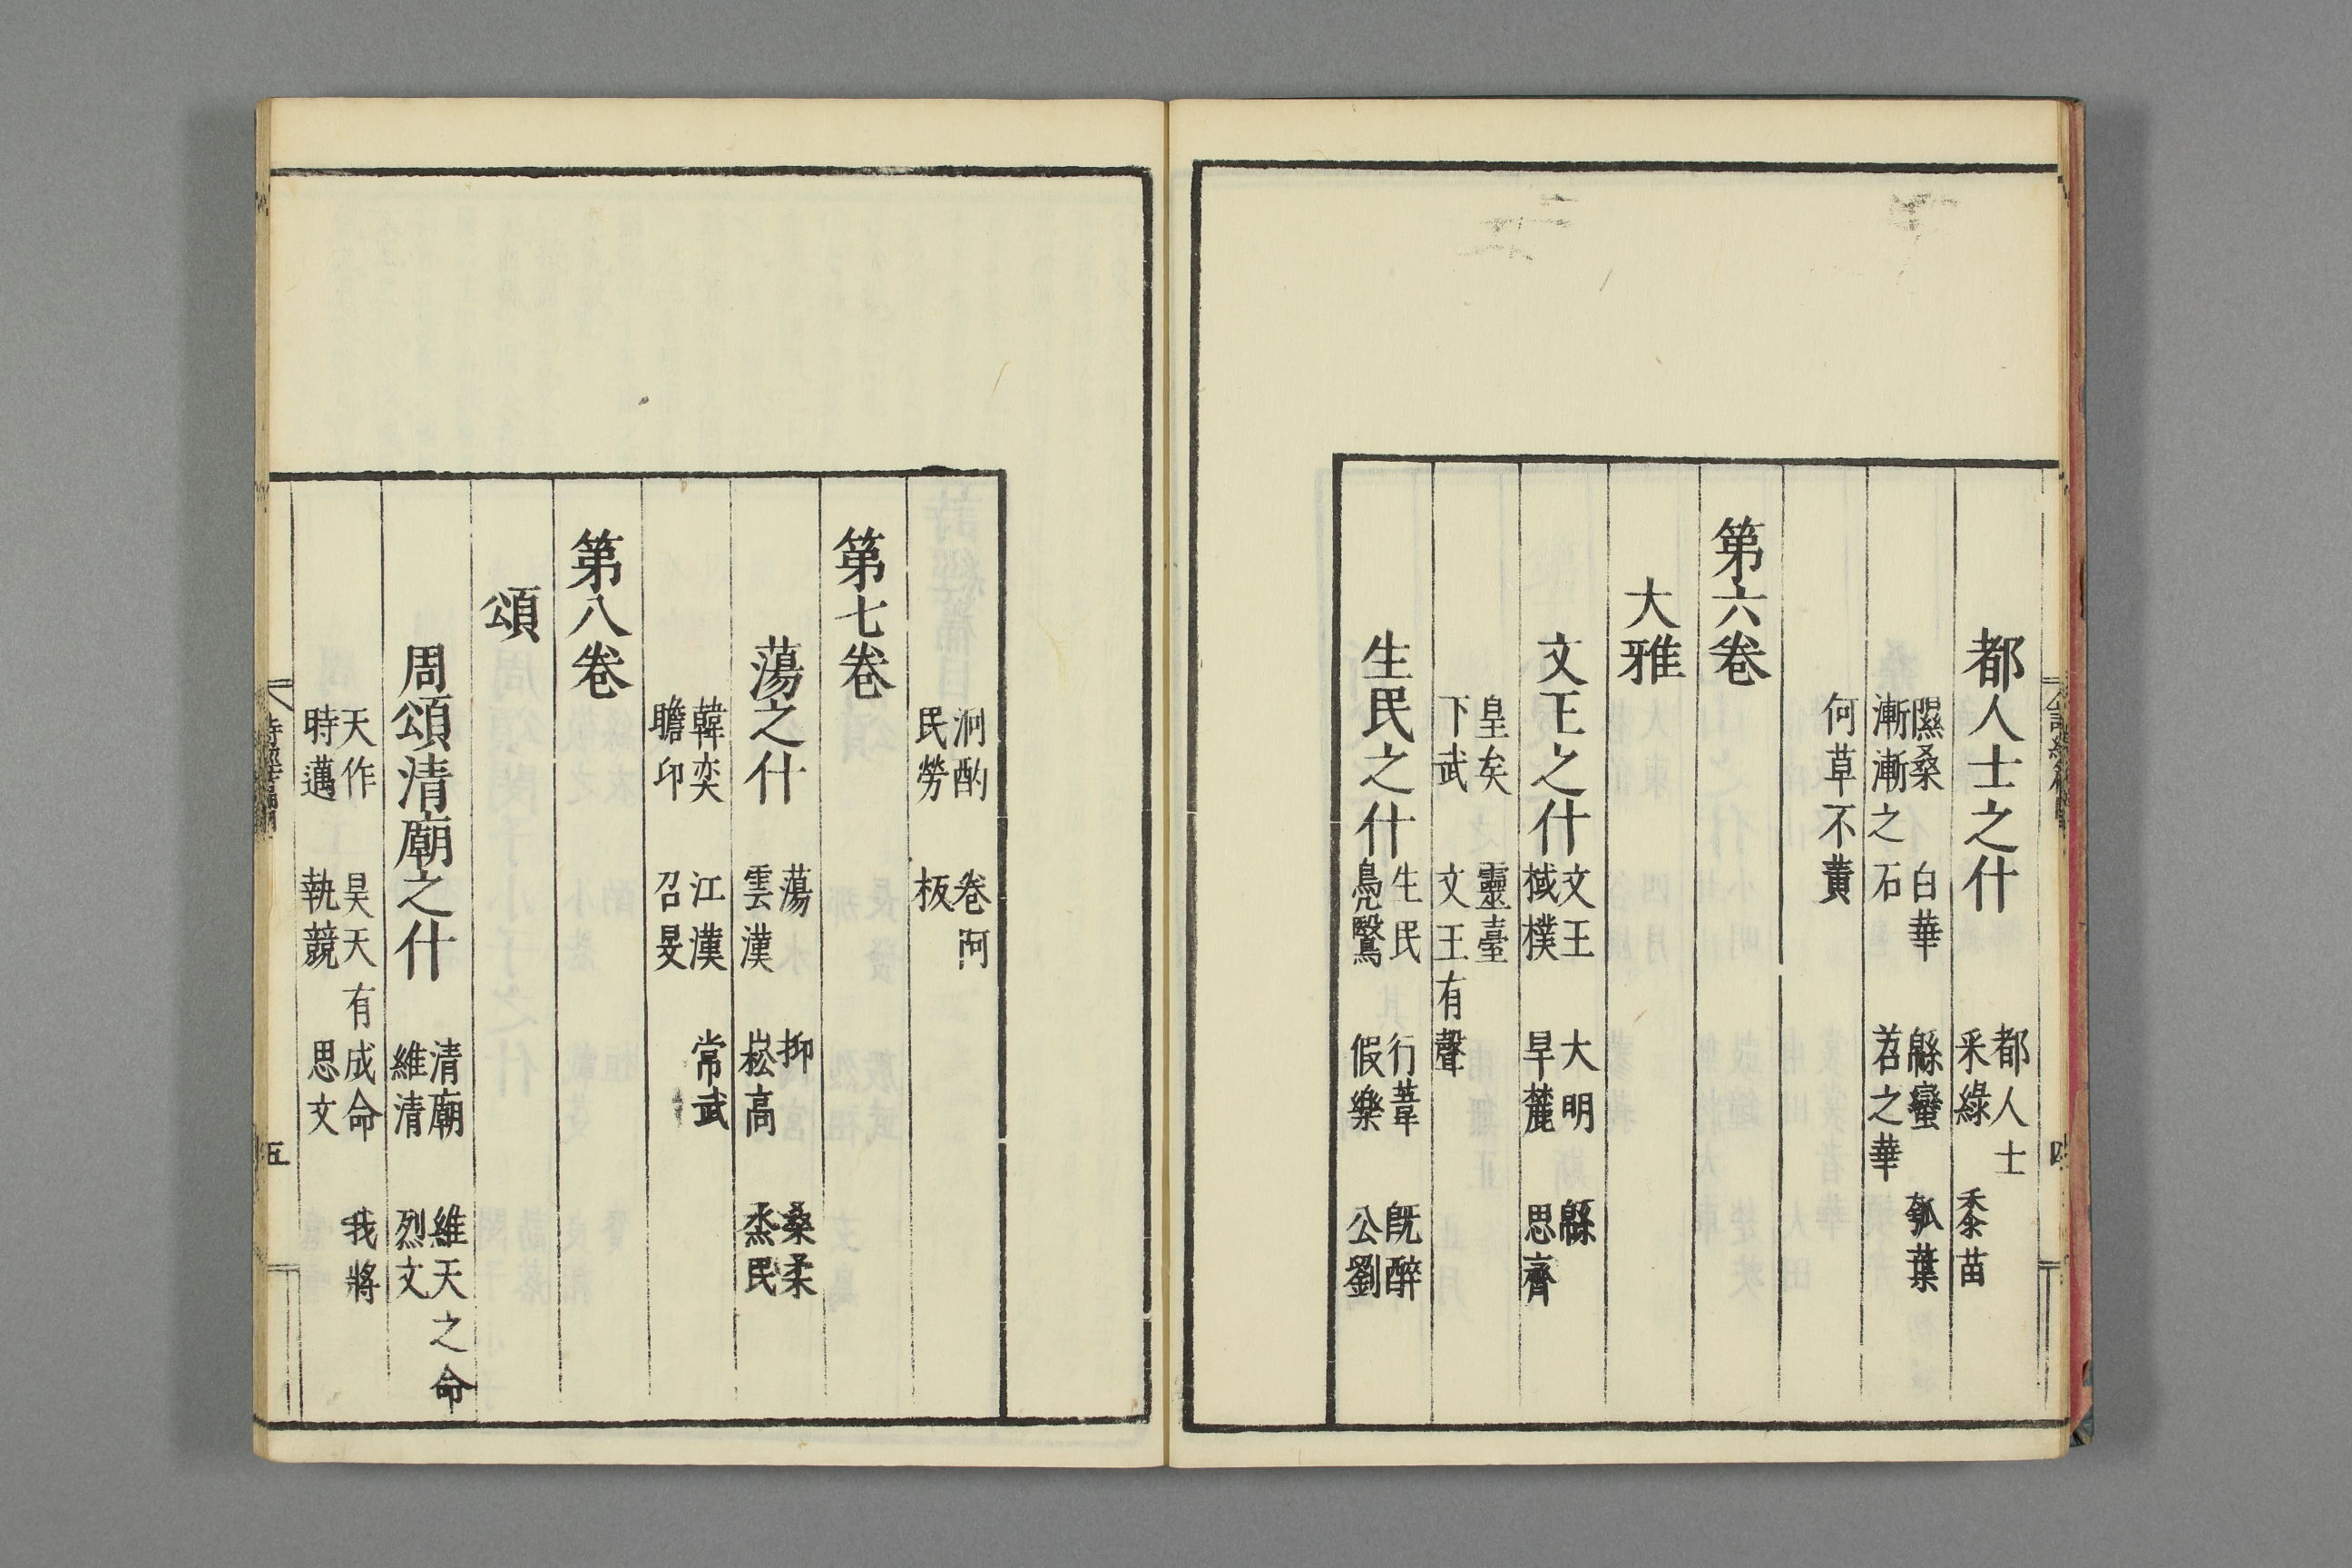 都人士之什　都人士　黍苗
采綠
隰桑　白華　緜蠻　瓠葉
漸漸之石　苕之華
何草不黃
第六卷
大雅
文王之什　文王　大明　緜
棫樸　旱麓　思齊
皇矣　靈臺
下武　文王有聲
生民之什　生民　行葦　既醉
鳧鷖　假樂　公劉
四
泂酌　卷阿
民勞　板
第七卷
蕩之什　蕩　抑　桑柔
雲漢　崧高　烝民
韓奕　江漢　常武
瞻卬　召旻
第八卷
頌
周頌清廟之什　清廟　維天之命
維清　烈文
天作　昊天有成命　我將
時邁　執競　思文
五